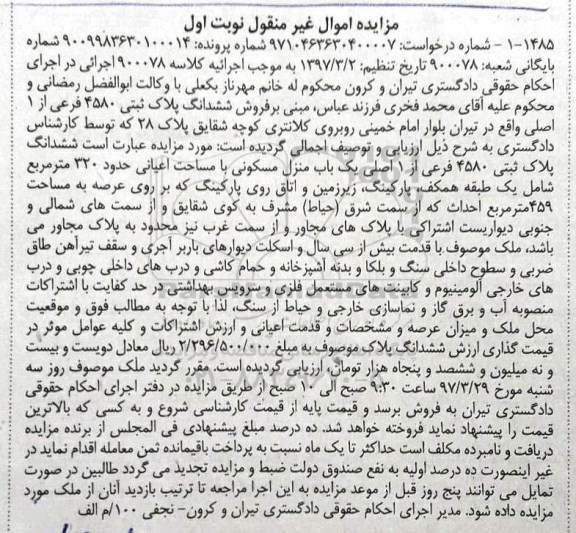 مزایده اموال غیر منقول نوبت اول
۱-۱۴۸۵ – شماره درخواست: ۹۷۱۰۴۶۳۶۳۰۴۰۰۰۰۷ شماره پرونده: ۹۰۰۹۹۸۳۶۳۰۱۰۰۰۱۴ شماره
بایگانی شعبه: ۹۰۰۰۷۸ تاریخ تنظیم: ۱۳۹۷/۳/۲ به موجب اجرائیه کلاسه ۹۰۰۰۷۸ اجرائی در اجرای
احکام حقوقی دادگستری تیران و کرون محکوم له خانم مهرناز یکعلی با وکالت ابوالفضل رمضانی و
محکوم علیه آقای محمد فخری فرزند عباس، مبنی برفروش ششدانگ پلاک ثبتی ۴۵۸۰ فرعی از ۱
اصلی واقع در تیران بلوار امام خمینی روبروی کلانتری کوچه شقایق پلاک ۲۸ که توسط کارشناس
دادگستری به شرح ذیل ارزیابی و توصیف اجمالی گردیده است: مورد مزایده عبارت است ششدانگ
پلاک ثبتی ۴۵۸۰ فرعی از ۱ اصلی یک باب منزل مسکونی با مساحت اعیانی حدود ۳۲۰ مترمربع
شامل یک طبقه همکف، پارکینگ، زیرزمین و اتاق روی پارکینگ که بر روی عرصه به مساحت
۴۵۹مترمربع احداث که از سمت شرق (حیاط) مشرف به کوی شقایق و از سمت های شمالی و
جنوبی دیواریست اشتراکی با پلاک های مجاور و از سمت غرب نیز محدود به پلاک مجاور می
باشد، ملک موصوف با قدمت بیش از سی سال و اسکلت دیوارهای باربر آجری و سقف تیرآهن طاق
ضربی و سطوح داخلی سنگ و بلکا و بدنه آشپزخانه و حمام کاشی و درب های داخلی چوبی و درب
های خارجی آلومینیوم و کابینت های مستعمل فلزی و سرویس بهداشتی در حد کفایت با اشتراکات
منصوبه آب و برق گاز و نماسازی خارجی و حیاط از سنگ، لذا با توجه به مطالب فوق و موقعیت
محل ملک و میزان عرصه و مشخصات و قدمت اعیانی و ارزش اشتراکات و کلیه عوامل موثر در
قیمت گذاری ارزش ششدانگ پلاک موصوف به مبلغ ۲/۲۹۶/۵۰۰/۰۰۰ ریال معادل دویست و بیست
و نه میلیون و ششصد و پنجاه هزار تومان، ارزیابی گردیده است. مقرر گردید ملک موصوف روز سه
شنبه مورخ ۹۷/۳/۲۹ ساعت ۹:۳۰ صبح الی ۱۰ صبح از طریق مزایده در دفتر اجرای احکام حقوقی
دادگستری تیران به فروش برسد و قیمت پایه از قیمت کارشناسی شروع و به کسی که بالاترین
قیمت را پیشنهاد نماید فروخته خواهد شد. ده درصد مبلغ پیشنهادی فی المجلس از برنده مزایده
دریافت و نامبرده مکلف است حداکثر تا یک ماه نسبت به پرداخت باقیمانده ثمن معامله اقدام نماید در
غیر اینصورت ده درصد اولیه به نفع صندوق دولت ضبط و مزایده تجدید می گردد طالبین در صورت
تمایل می توانند پنج روز قبل از موعد مزایده به این اجرا مراجعه تا ترتیب بازدید آنان از ملک مورد
مزایده داده شود. مدیر اجرای احکام حقوقی دادگستری تیران و کرون– نجفی ۱۰۰/م الف